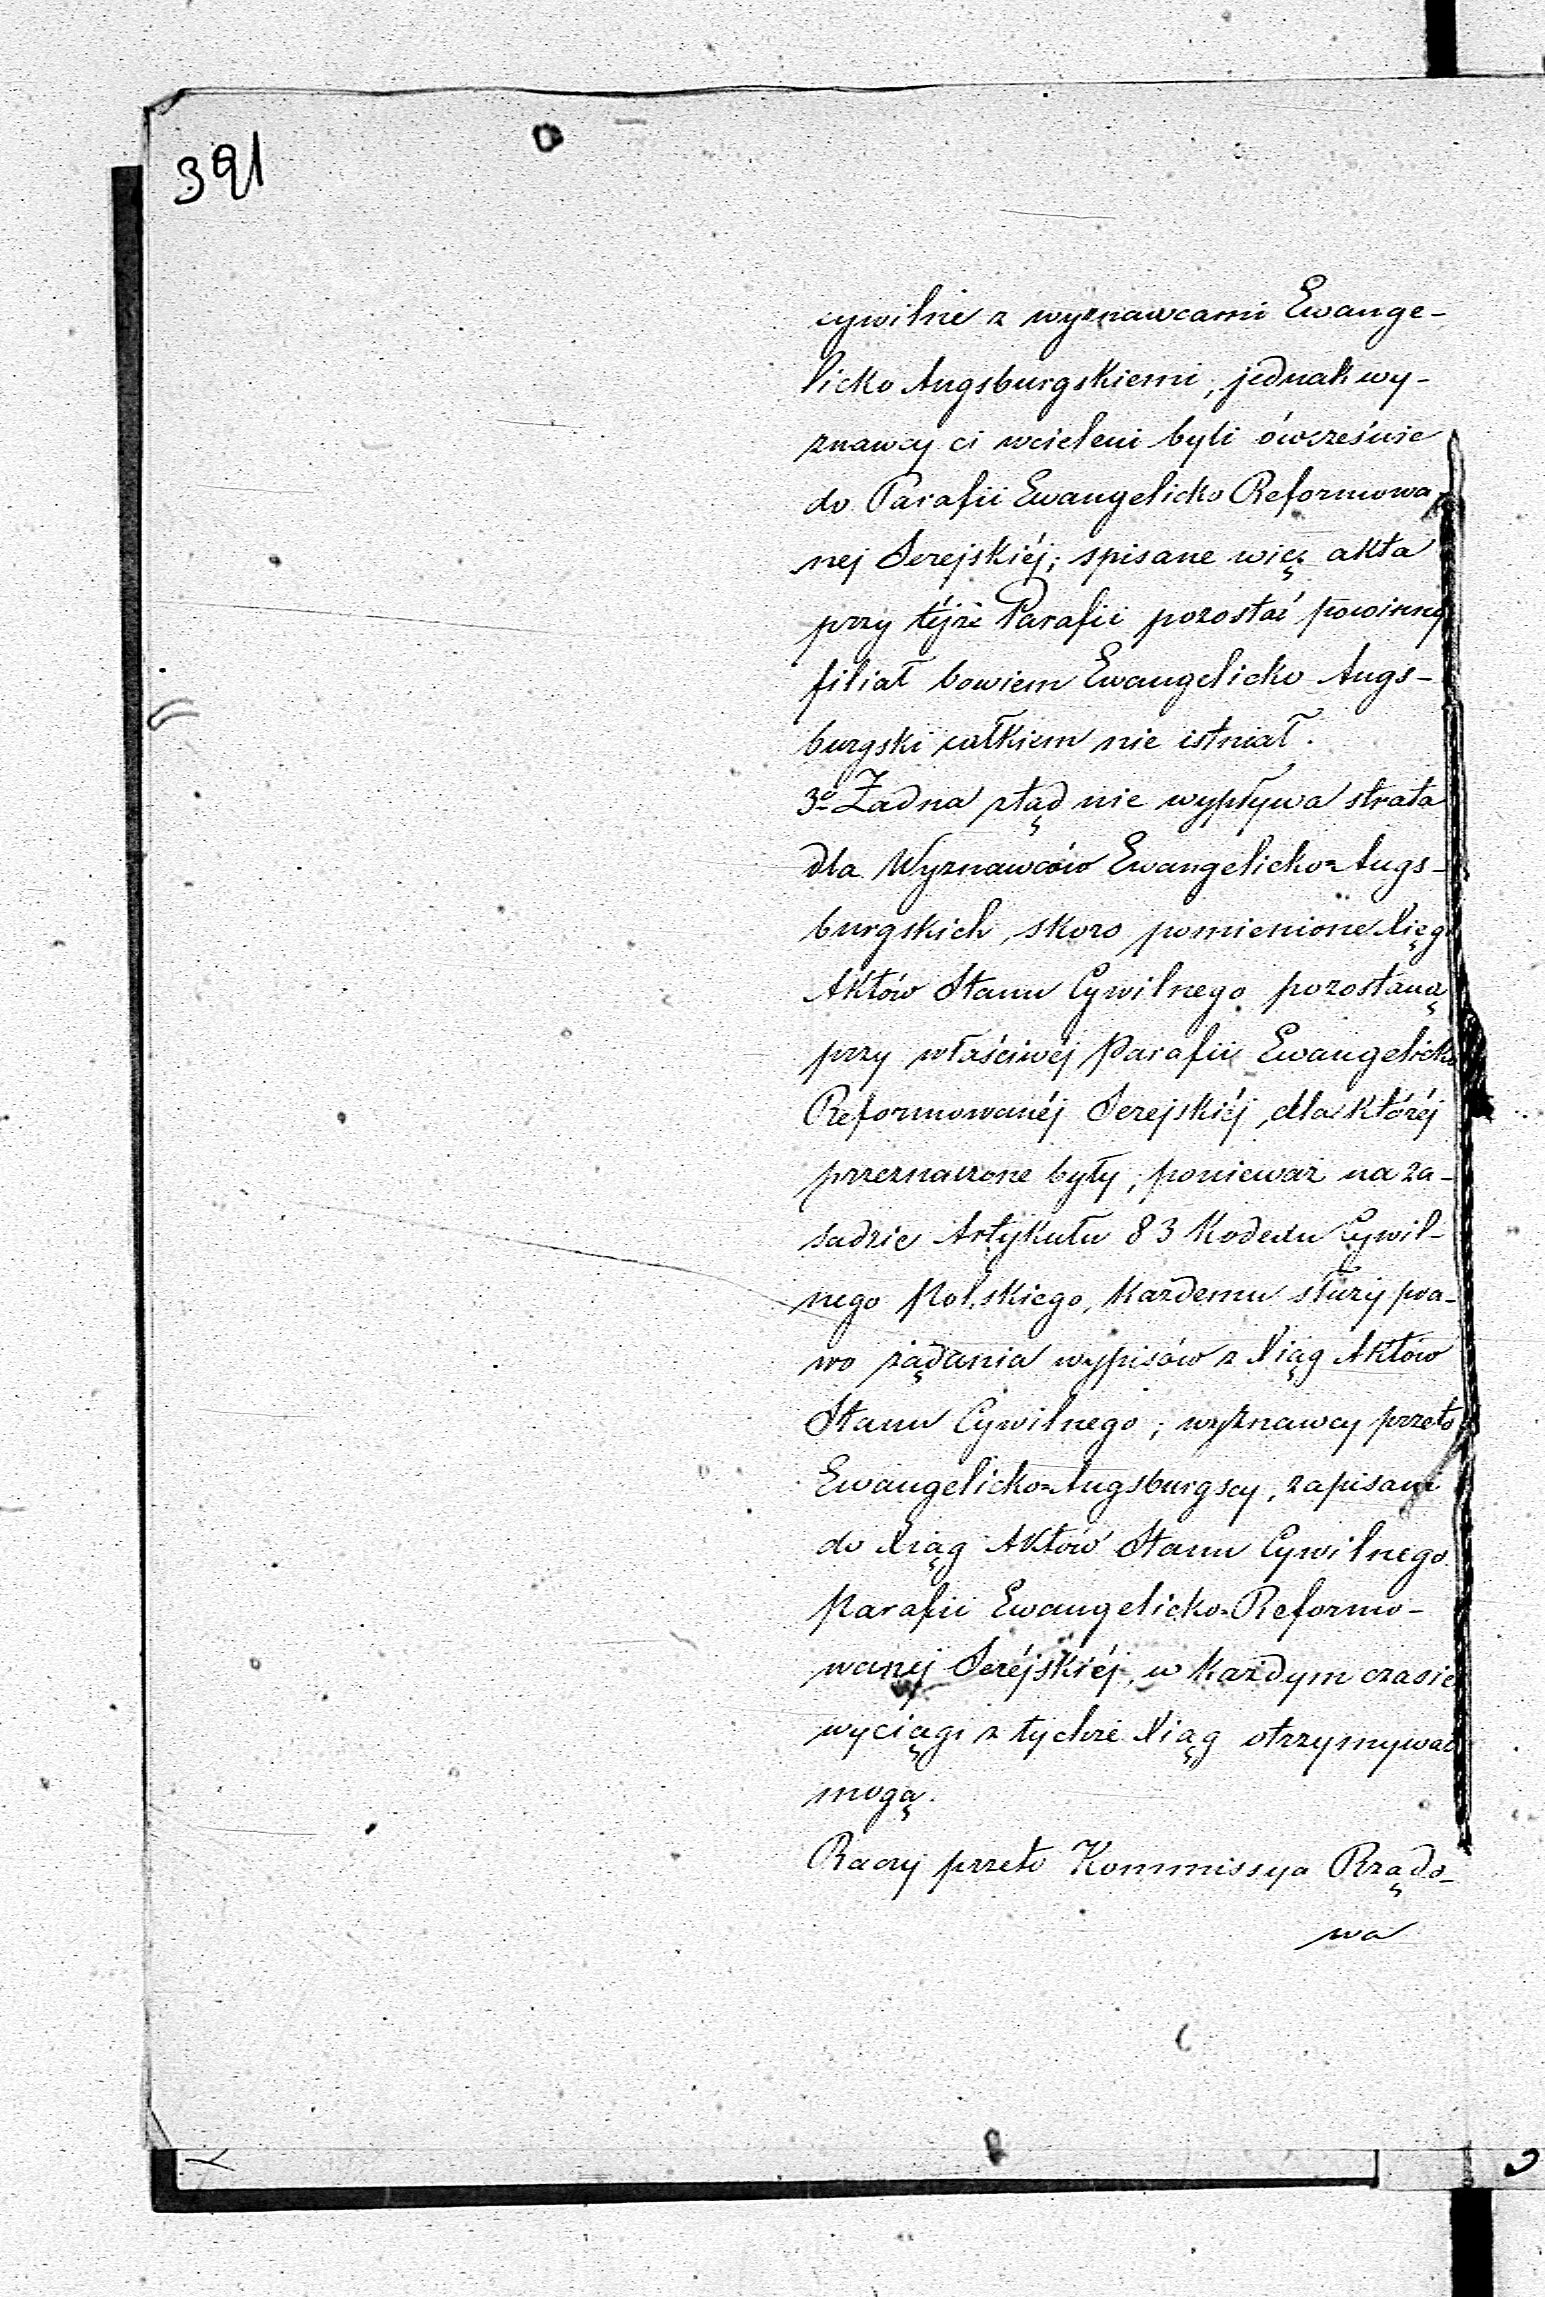 391
cywilnie z wyznawcami Ewange-
licko Augsburgskiemi, jednak wy-
znawcy ci wcieleni byli ówcześnie
do Parafii Ewangelicko Reformowa-
nej Serejskiéj; spisane więc akta
przy téjże Parafii pozostać powinny
filiał bowiem Ewangelicko Augs-
burgski całkiem nie istniał.
3o Żadna ztąd nie wypływa strata
dla Wyznawców Ewangelicko=Augs-
burgskich, skoro pomienione Xięgi
Aktów Stanu Cywilnego pozostaną
przy właściwéj Parafii Ewangelicko
Reformowanéj Serejskiéj, dla któréj
przeznaczone były, ponieważ na za-
sadzie Artykułu 83 Kodexu Cywil-
nego Polskiego, każdemu służy pra-
wo żądania wypisów z Xiąg Aktów
Stanu Cywilnego; wyznawcy przeto
Ewangelicko=Augsburgscy, zapisani
do Xiąg Aktów Stanu Cywilnego
Parafii Ewangelicko=Reformo-
wanej Seréjskiéj, w każdym czasie
wyciągi z tychże Xiąg otrzymywać
mogą.
Raczy przeto Kommissya Rządo-
wa